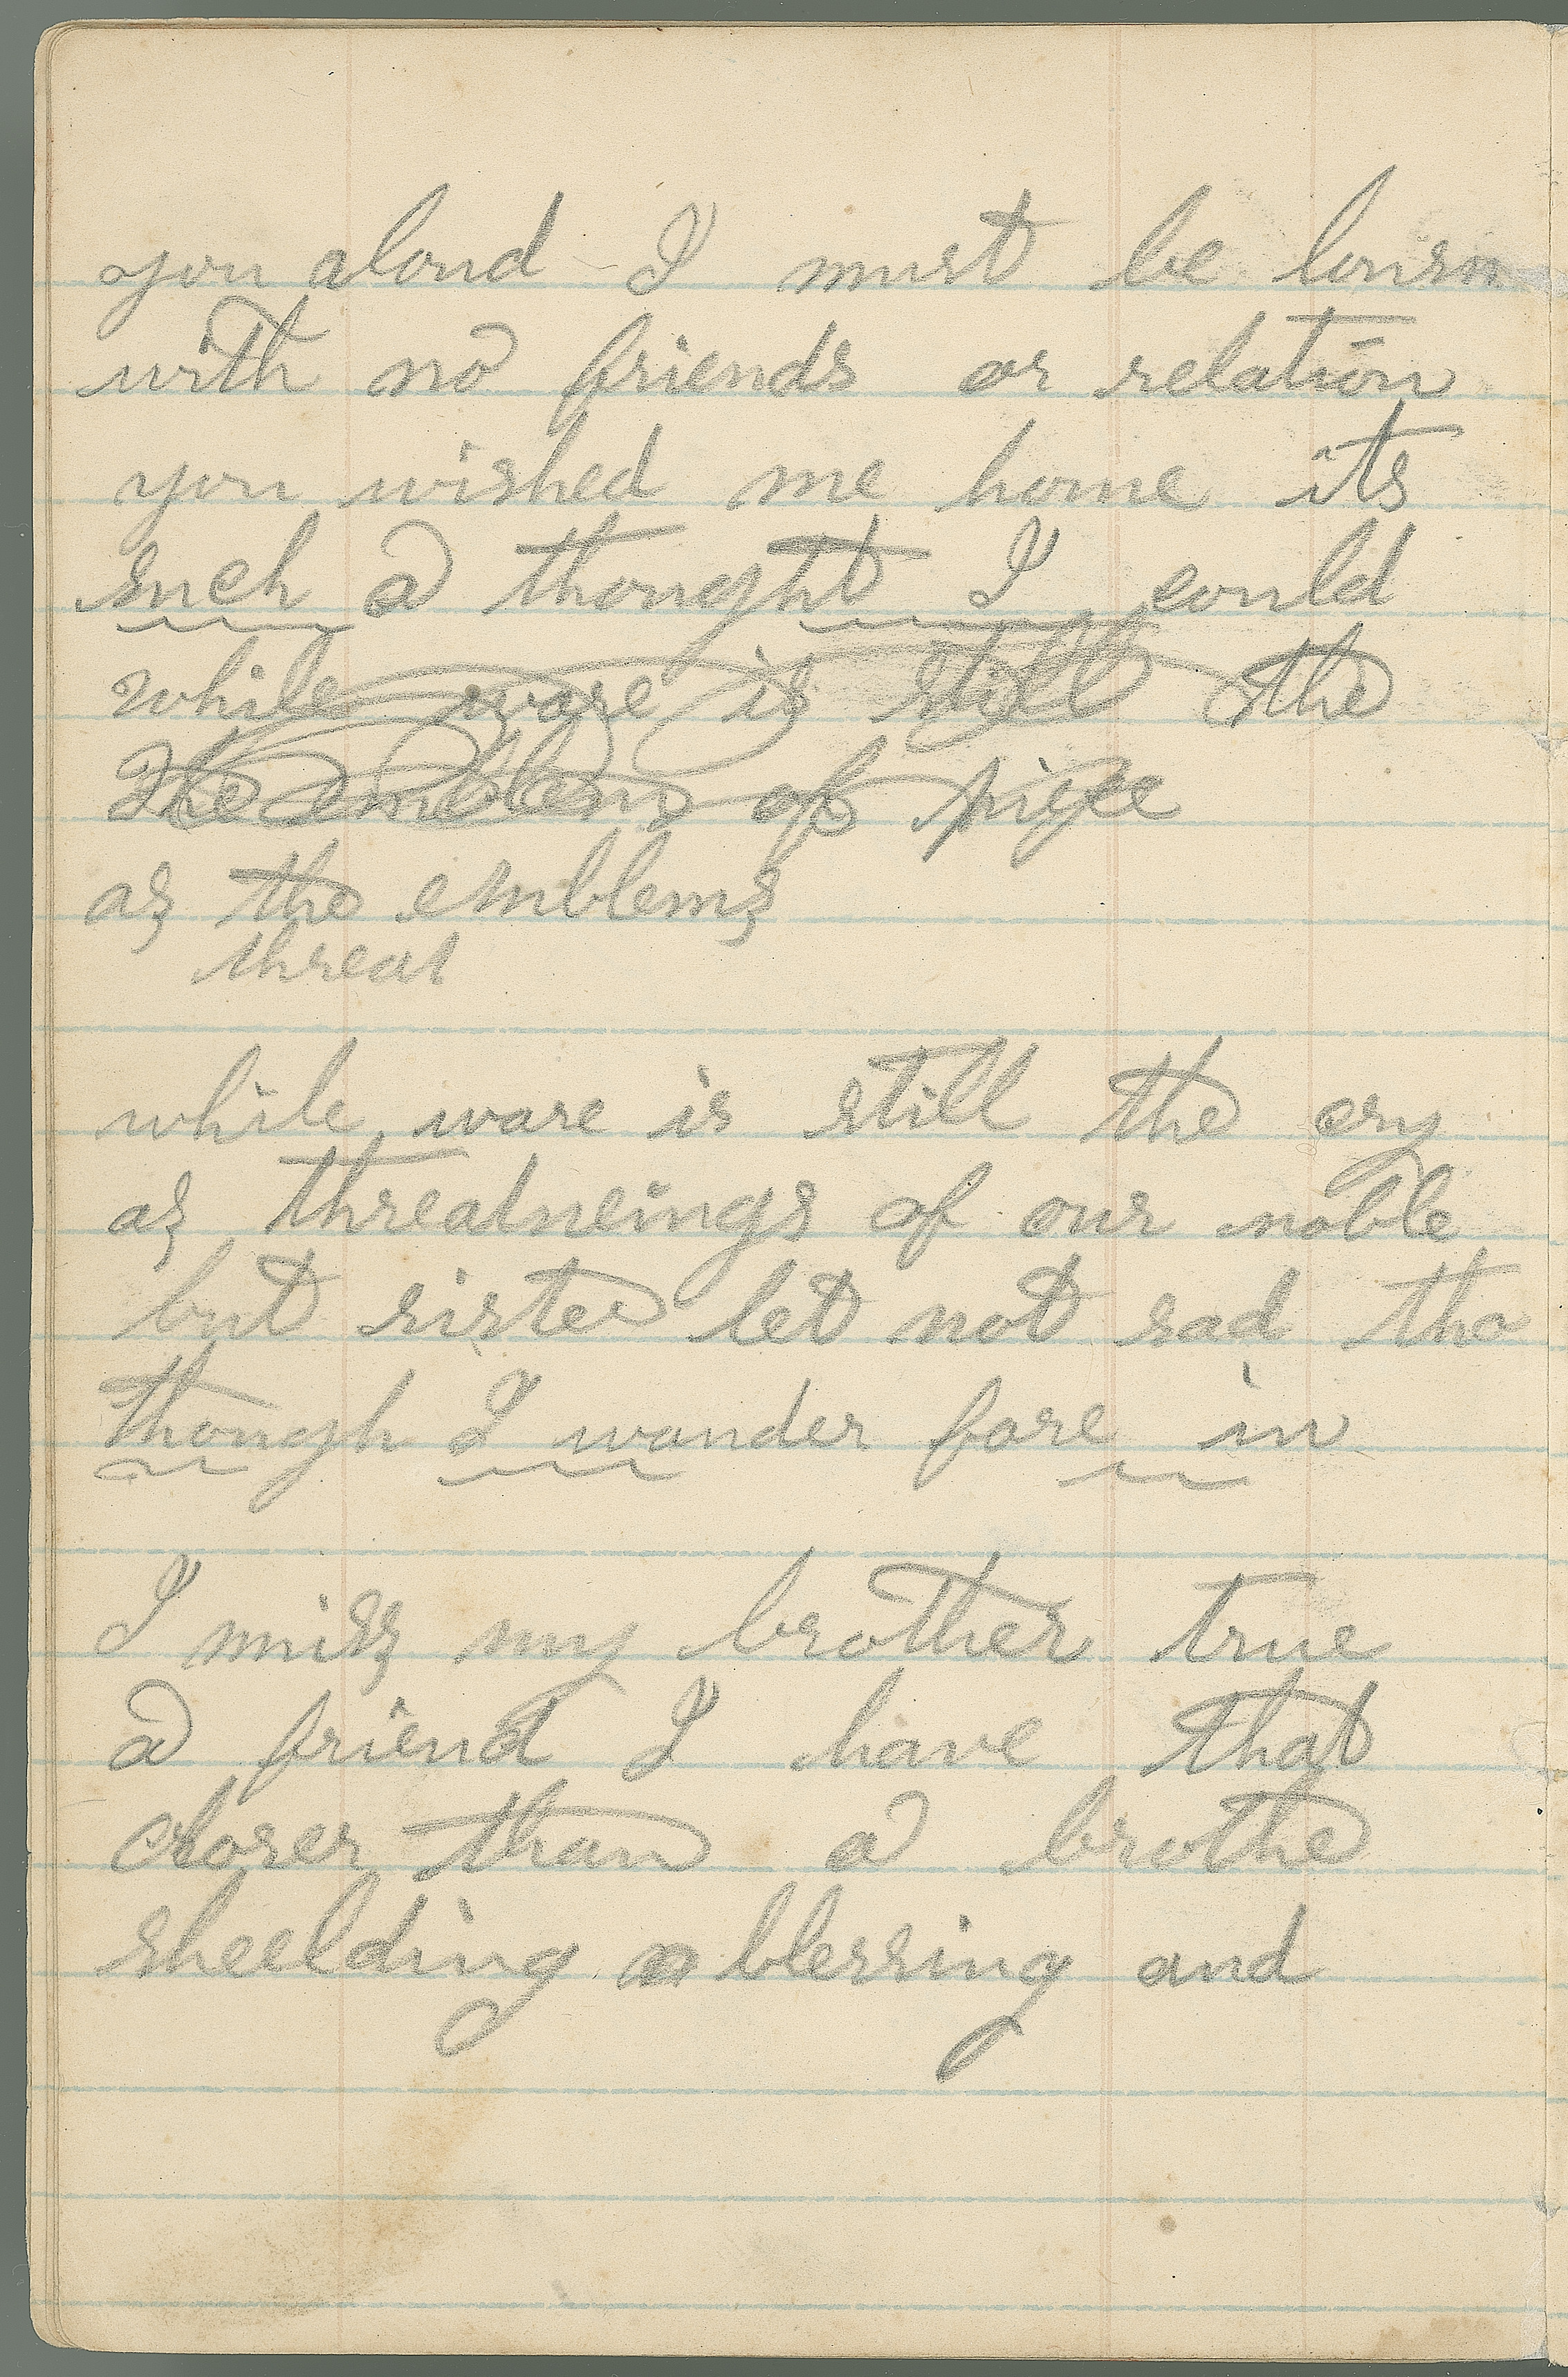 you aloud I must be lonsn
with no friends or relation
you wished me home its
such a thought I could
while ware is still the
The emblem of piece
as the emblems
threat
while ware is still the cry
as threatneings of our noble
but sister let not sad tho
though I wander fare in
I miss my brother true
a friend I have that
closer than a brothe
sheelding blessing and